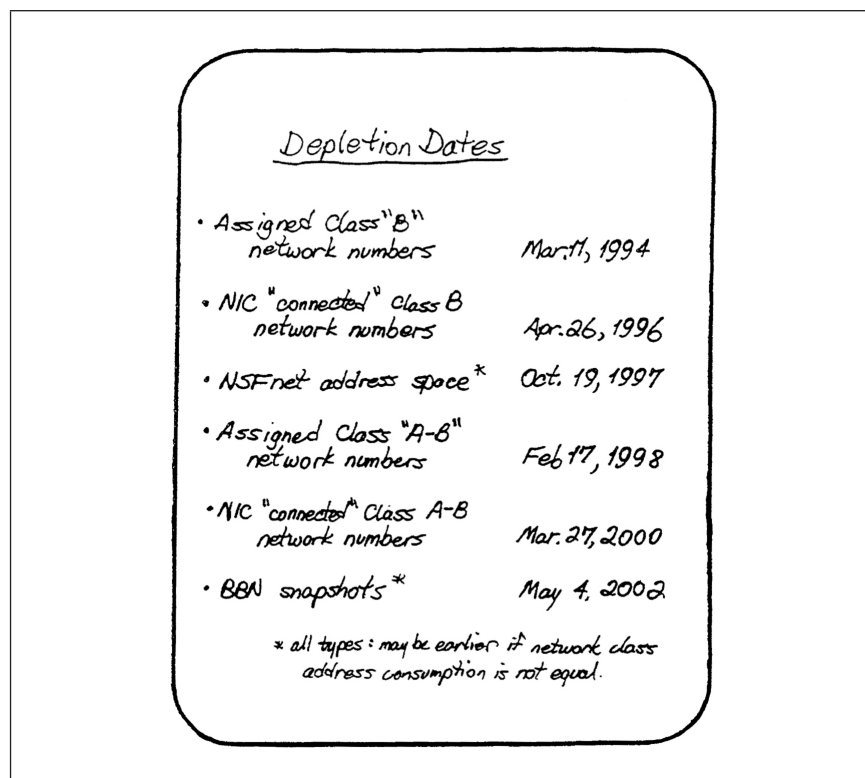 Depletion Dates
• Assigned Class "B"
network numbers Mar. 11, 1994
• NIC "connected" Class B
network numbers Apr. 26, 1996
• NSFnet address space* Oct. 19, 1997
• Assigned Class "A-B"
network numbers Feb 17, 1998
• NIC "connected" Class A-B
network numbers Mar. 27, 2000
• BBN snapshots* May 4, 2002
* all types : may be earlier if network class
address consumption is not equal.